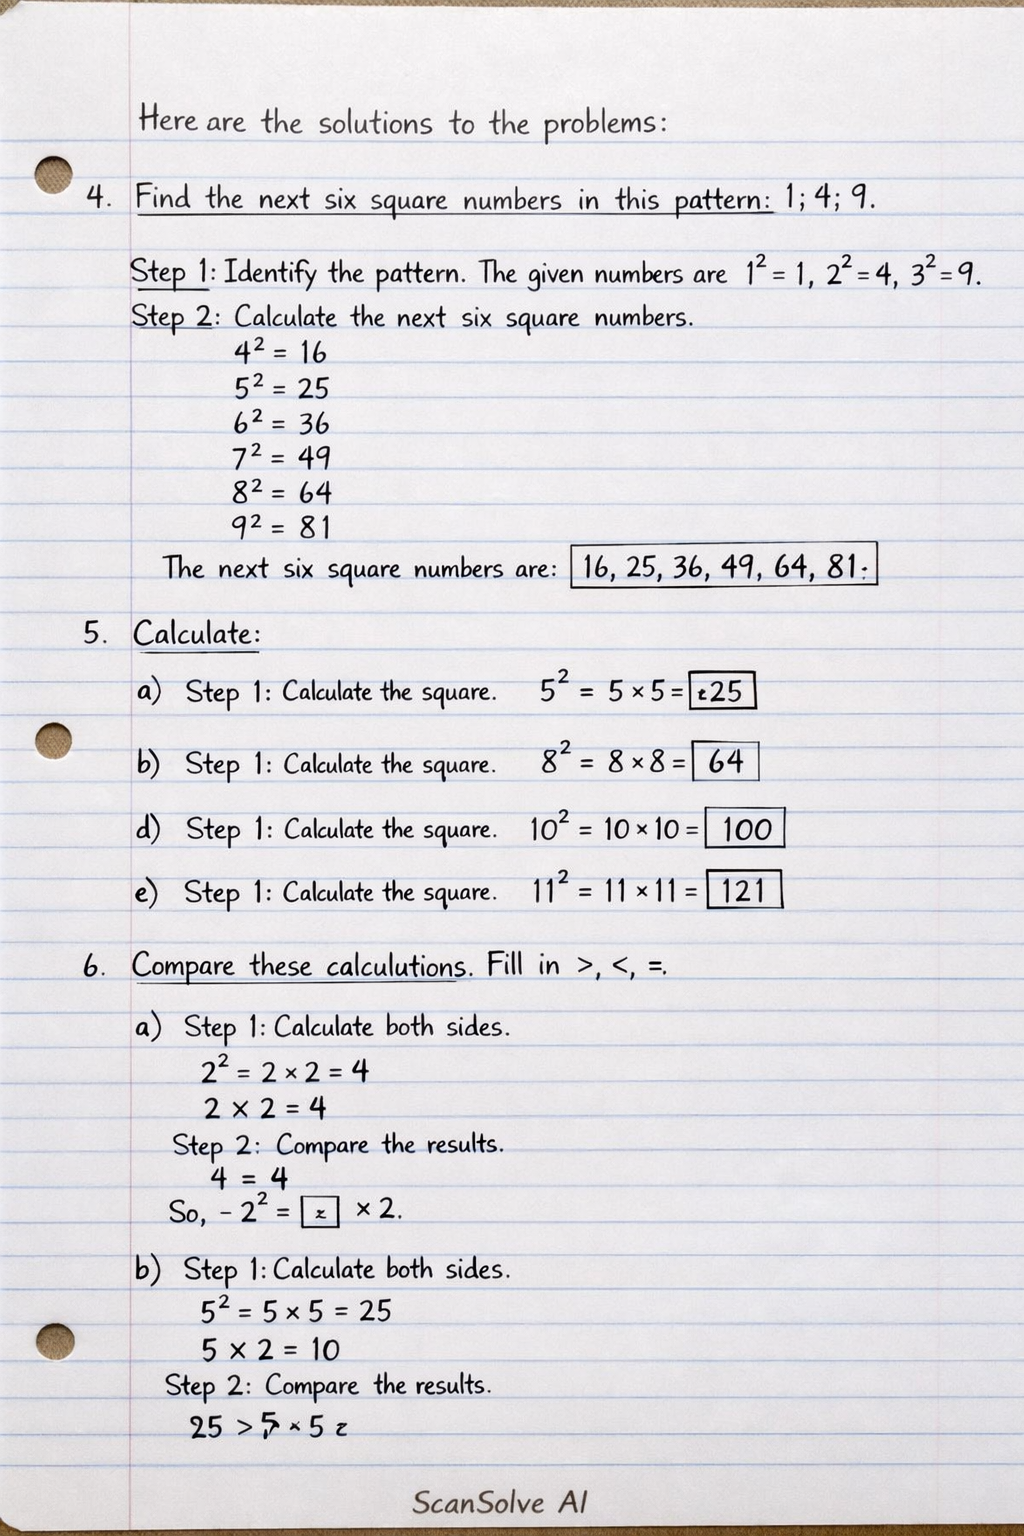 Here are the solutions to the problems:
4. Find the next six square numbers in this pattern: 1; 4; 9.
Step 1: Identify the pattern. The given numbers are 1² = 1, 2² = 4, 3² = 9.
Step 2: Calculate the next six square numbers.
4² = 16
5² = 25
6² = 36
7² = 49
8² = 64
9² = 81
The next six square numbers are: 16, 25, 36, 49, 64, 81:
5. Calculate:
a) Step 1: Calculate the square. 5² = 5 × 5 = 25
b) Step 1: Calculate the square. 8² = 8 × 8 = 64
d) Step 1: Calculate the square. 10² = 10 × 10 = 100
e) Step 1: Calculate the square. 11² = 11 × 11 = 121
6. Compare these calculutions. Fill in >, <, =.
a) Step 1: Calculate both sides.
2² = 2 × 2 = 4
2 × 2 = 4
Step 2: Compare the results.
4 = 4
So, - 2² = z × 2.
b) Step 1: Calculate both sides.
5² = 5 × 5 = 25
5 × 2 = 10
Step 2: Compare the results.
25 > 5 × 5 z
ScanSolve AI